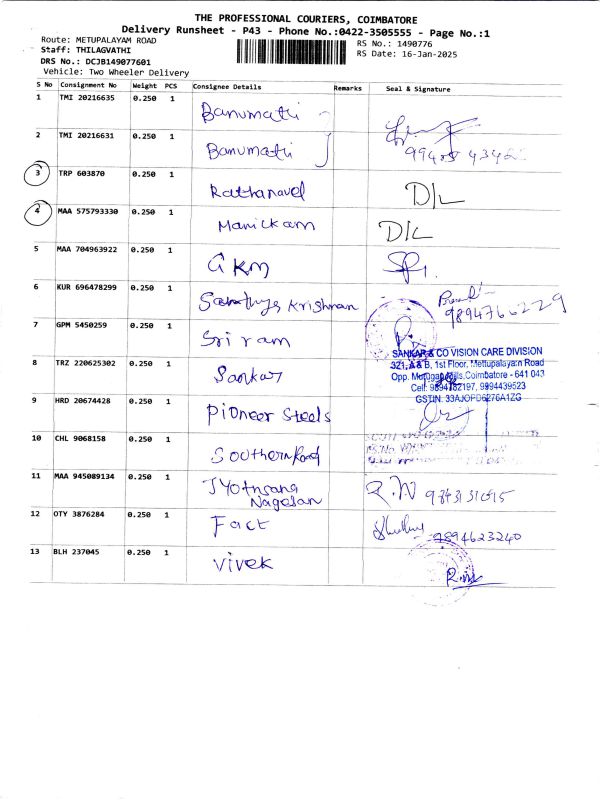 THE PROFESSIONAL COURIERS, COIMBATORE
Delivery Runsheet - P43 - Phone No.:0422-3505555 - Page No.:1
Route: METUPALAYAM ROAD
RS No.: 1490776
Staff: THILAGVATHI
RS Date: 16-Jan-2025
DRS No.: DCJB149077601
Vehicle: Two Wheeler Delivery
S No Consignment No Weight PCS Consignee Details Remarks Seal & Signature
1 TMI 20216635 0.250 1 Banumathi
2 TMI 20216631 0.250 1 Banumathi
3 TRP 603870 0.250 1 Rathanavel D/L
4 MAA 575793330 0.250 1 Manickam D/L
5 MAA 704963922 0.250 1 GKM
6 KUR 696478299 0.250 1 Krishnan 9894766229
7 GPM 5450259 0.250 1 Sriram
SANKAR & CO VISION CARE DIVISION
1st Floor, Mettupalayam Road
8 TRZ 220625302 0.250 1 Sankar
Opp. Coimbatore - 641 043
Cell: 9994439523
GSTIN:
9 HRD 20674428 0.250 1 Pioneer Steels
10 CHL 9068158 0.250 1 Southern
11 MAA 945089134 0.250 1 Jyothsana
Nagalan
12 OTY 3876284 0.250 1 Fact 9894623240
13 BLH 237045 0.250 1 Vivek